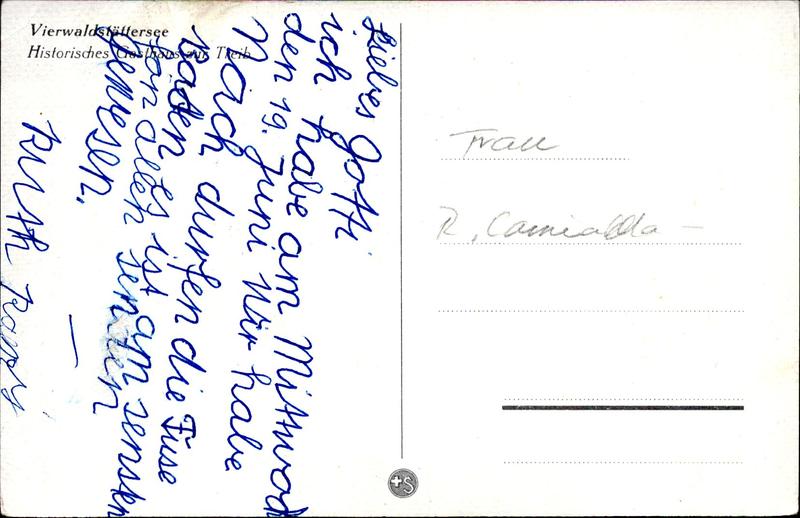 Vierwaldstättersee
Historisches Gasthaus zur Treib
Liebes Gotti
ich habe am Mittwoch
den 19. Juni wir habe
Noch durfen die Füse
baden es ist am sensten
fon allen senxten
gewesen.
Ruth
Frau
R.
+S